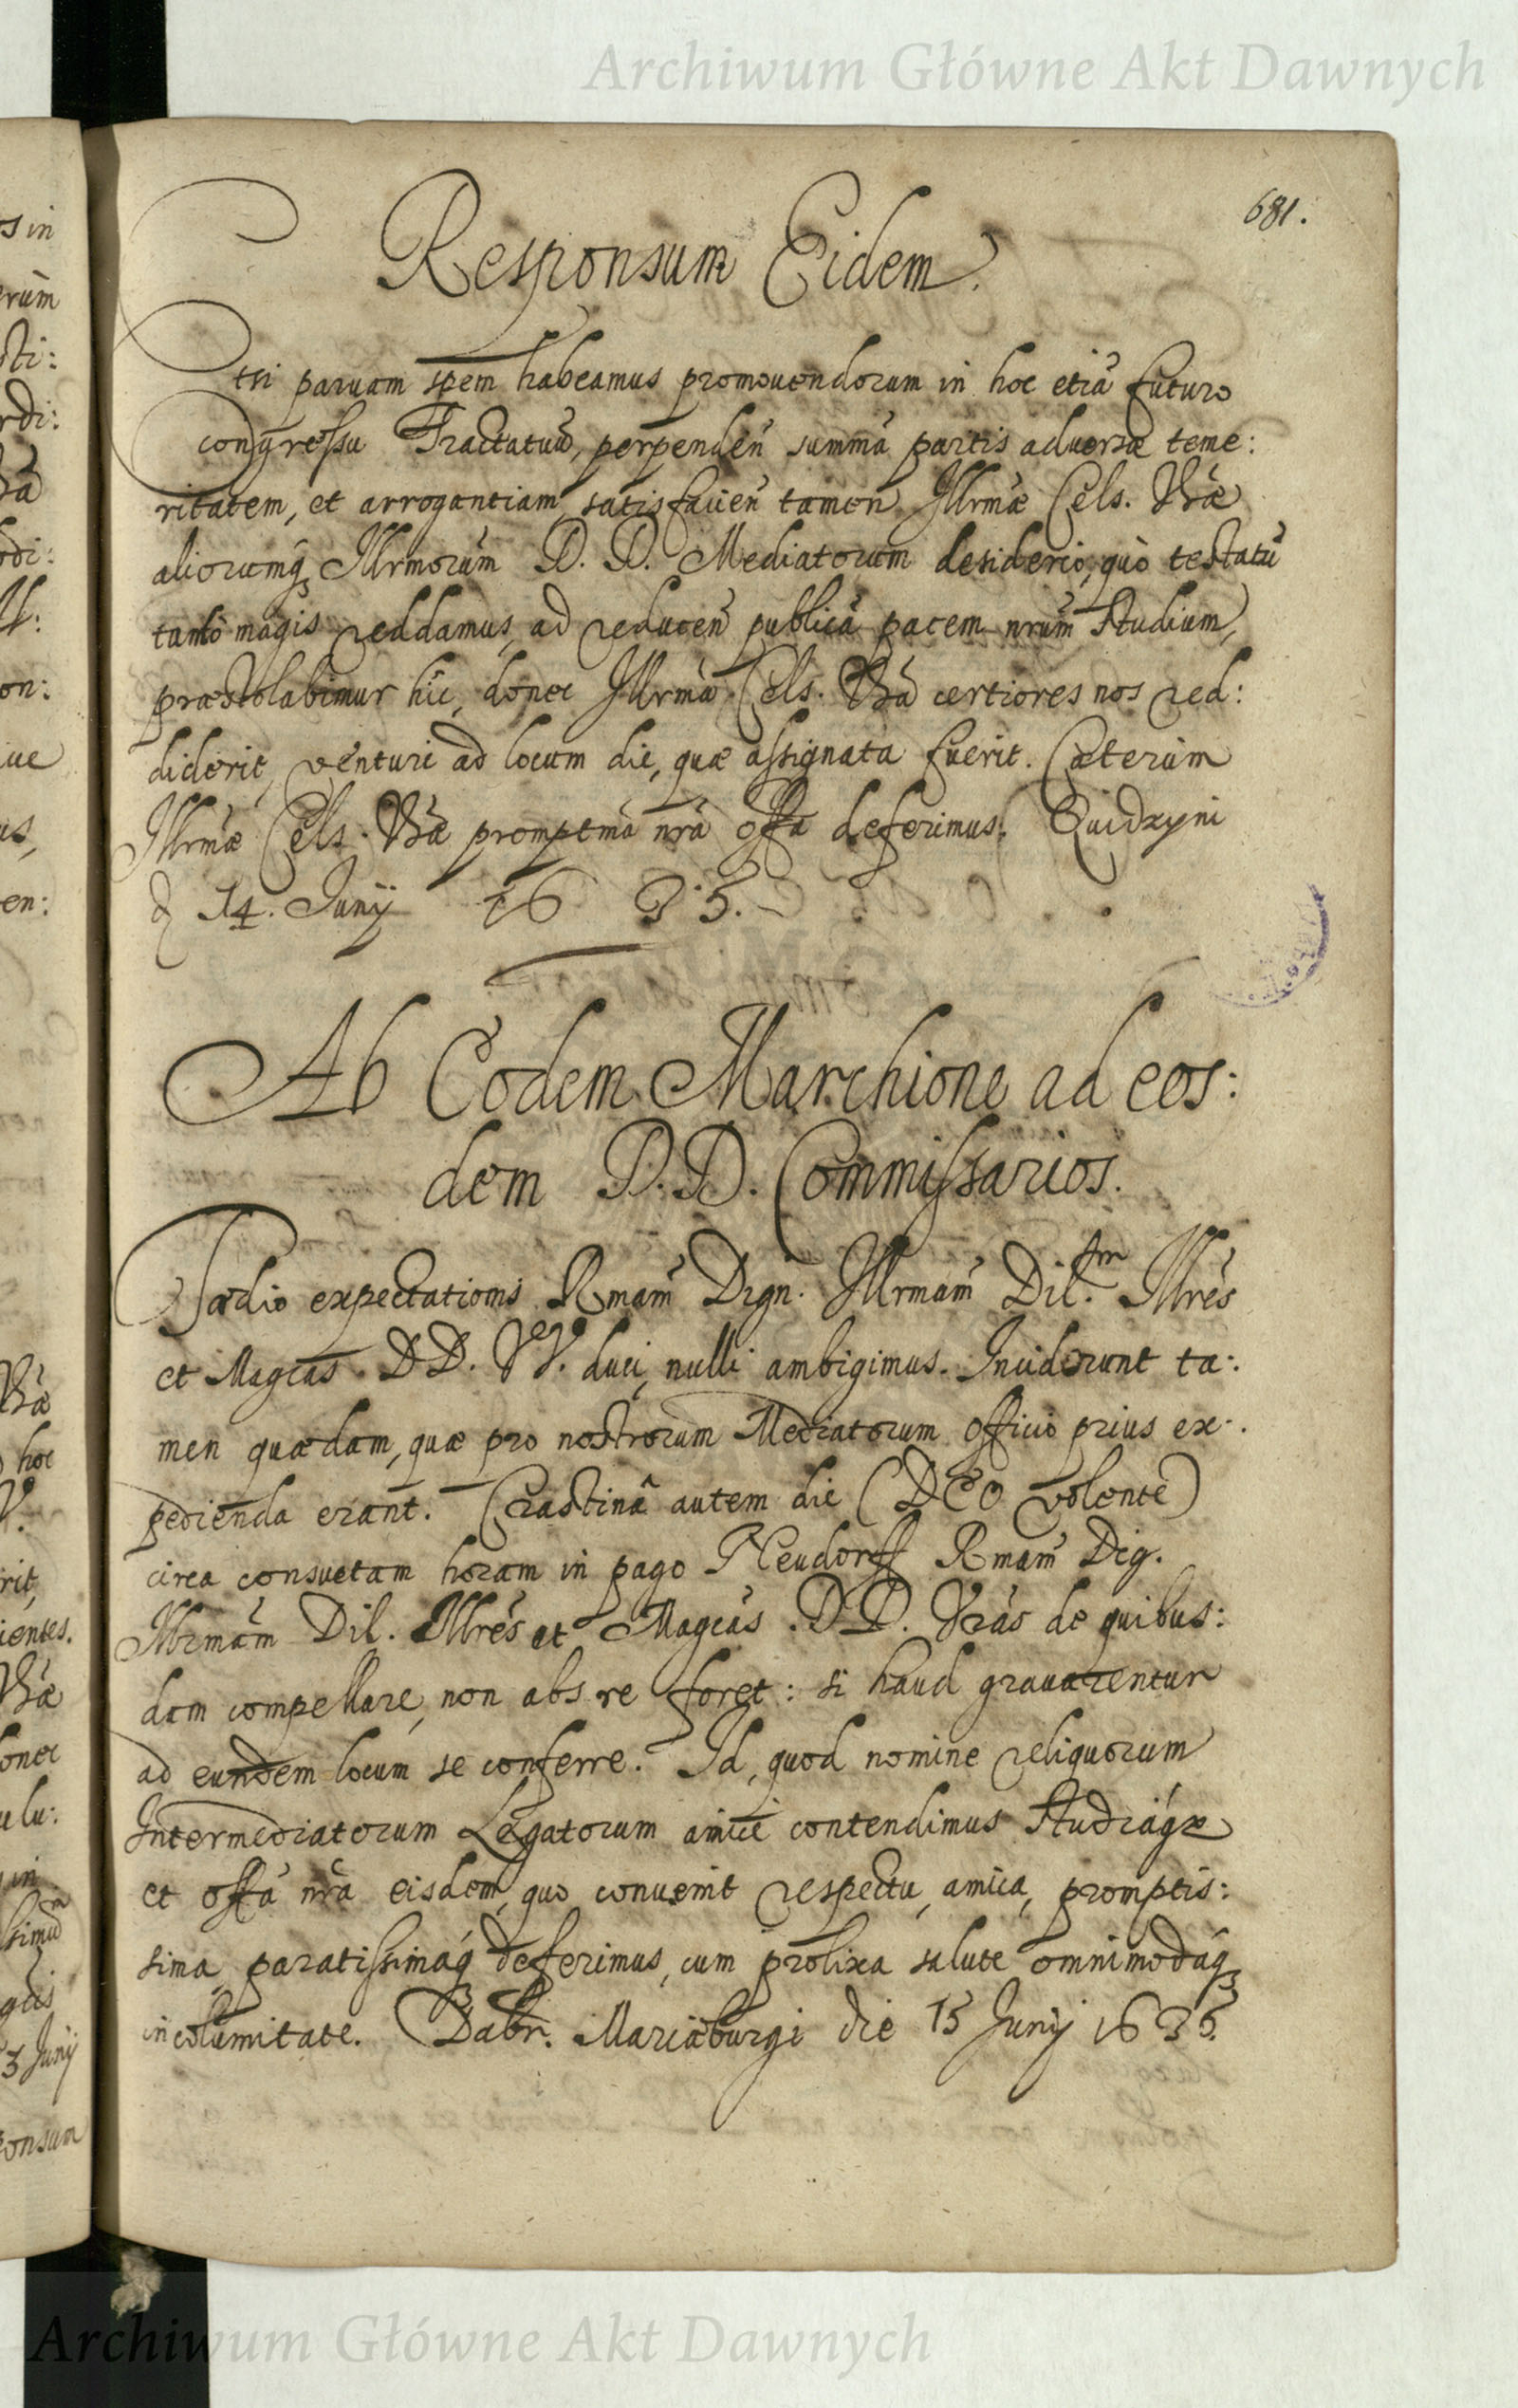 Archiwum Główne Akt Dawnych
681.
Responsum Eidem.
Etsi paruam spem habeamus promouendorum in hoc etiã futuro
congressu Tractatuũ, perpendeñ summã partis aduersæ teme:
ritatem, et arrogantiam, satisfacieñ tamen Illrmæ Cels. Vræ
aliorumq́ Illrmorum D. D. Mediatorum desiderio, quò testatũ
tantò magis reddamus, ad reduceñ publicã pacem nrũm studium,
præstolabimur hîc, donec Illrmã Cels. Vrã certiores nos red:
diderit, venturi ad locum die, quæ assignata fuerit. Cæterùm
Illrmæ Cels. Vræ promptmã nrã offa deferimus. Quidzyni
d 14. Junij 1635.
Ab Eodem Marchione ad eos:
dem D.D. Commissarios.
Tædio expectationis Rmam̃ Dign. Illrmam̃ Dil.tm Illrẽs
et Magcãs DD. VV. duci, nulli ambigimus. Inciderunt ta:
men quædam, quæ pro nostrorum Mediatorum officio prius ex:
pedienda erant. Crastinâ autem die (DEO volente)
circa consuetam horam in pago Neudorff Rmam̃ Dig.
Illrmam̃ Dil. Illrẽs et Magcãs DD. Vrãs de quibus:
dam compellare, non abs re foret: si haud grauarentur
ad eundem locum se conferre. Id, quod nomine reliquorum
Intermediatorum Legatorum amicè contendimus studiáqȝ
et offã nrã eisdem, quo conuenit respectu, amica, promptis:
sima, paratissimáqȝ deferimus, cum prolixa salute omnimodáqȝ
incolumitate. Dabr. Mariæburgi die 15 Junij 1635.
Archiwum Główne Akt Dawnych